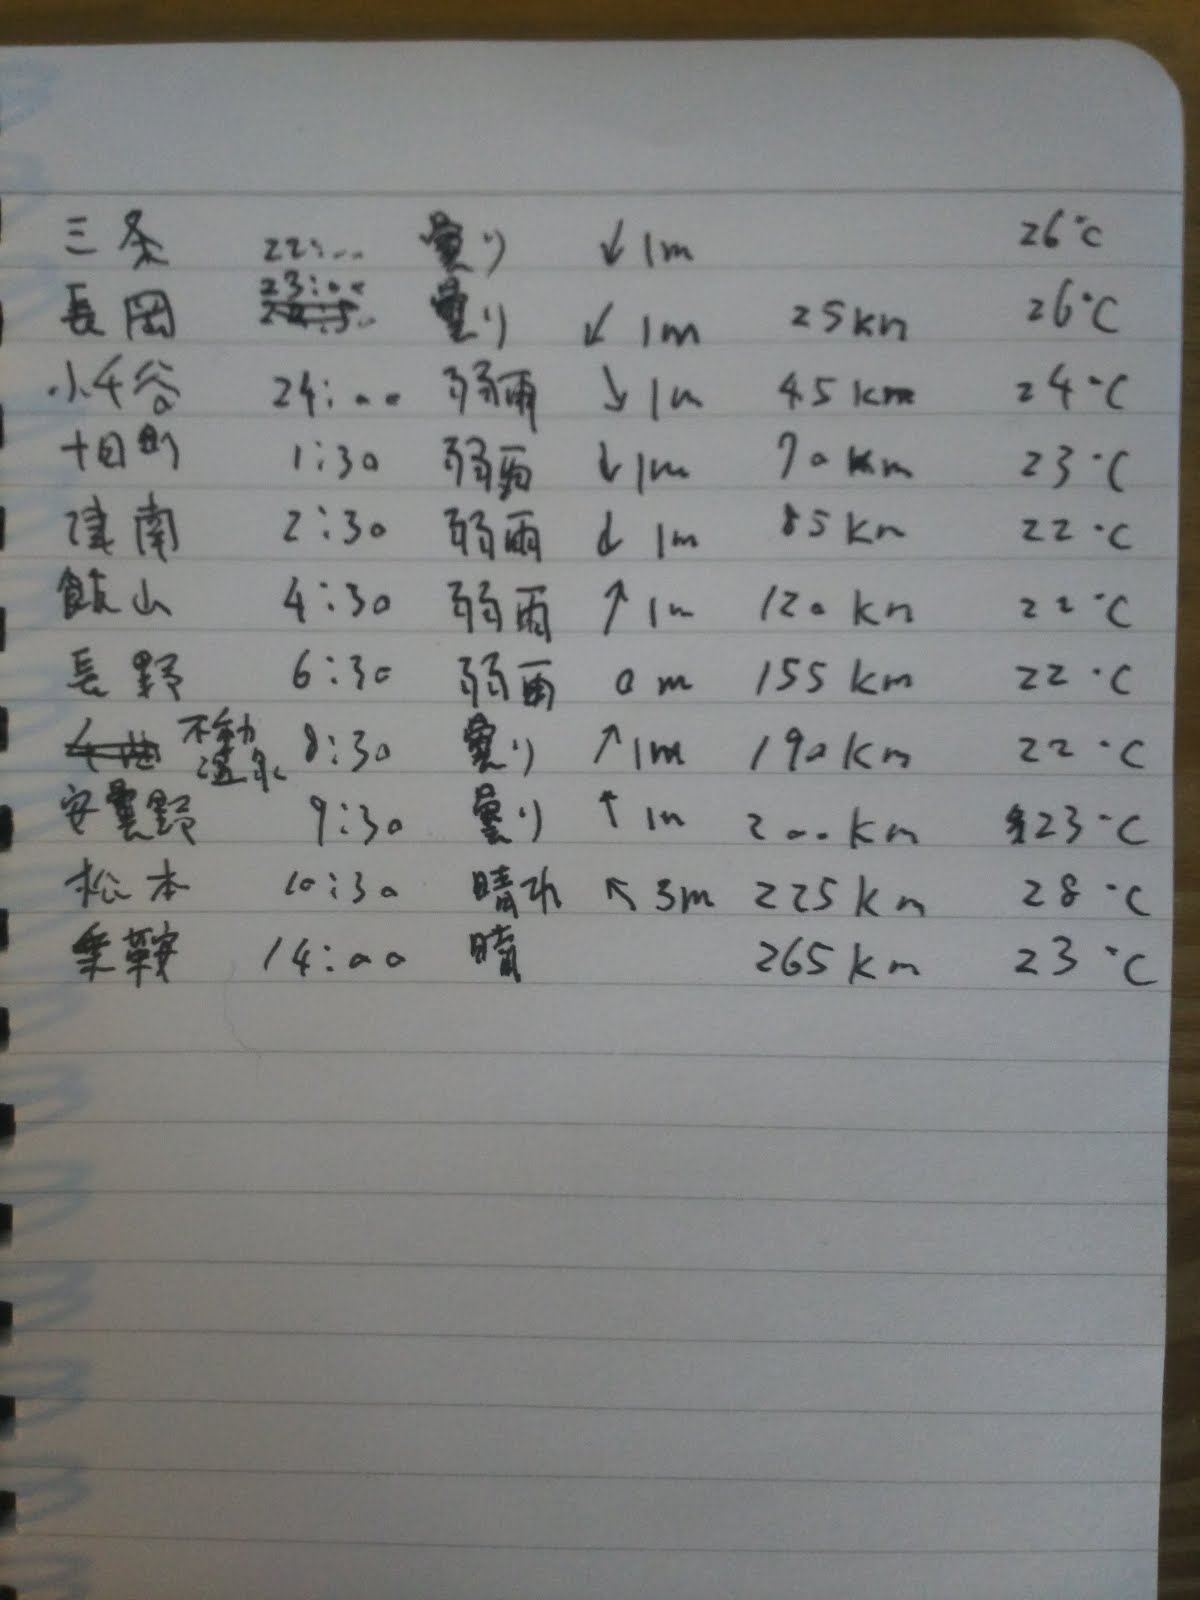 三条 22:00 曇り ↓ 1m 26℃
長岡 23:00 曇り ↙ 1m 25km 26℃
小千谷 24:00 弱雨 ↘ 1m 45km 24℃
十日町 1:30 弱雨 ↓ 1m 70km 23℃
津南 2:30 弱雨 ↓ 1m 85km 22℃
飯山 4:30 弱雨 ↗ 1m 120km 22℃
長野 6:30 弱雨 0m 155km 22℃
不動温泉 8:30 曇り ↗ 1m 190km 22℃
安曇野 9:30 曇り ↑ 1m 200km 23℃
松本 10:30 晴れ ↖ 3m 225km 28℃
乗鞍 14:00 晴 265km 23℃